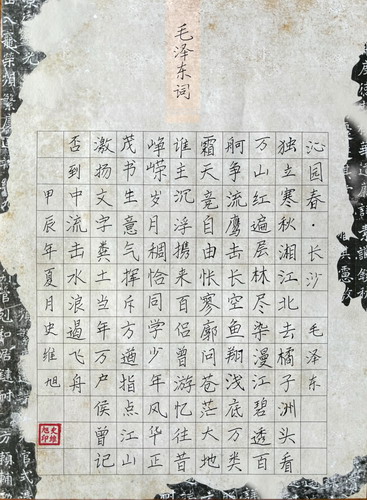 毛泽东词
沁园春·长沙 毛泽东
独立寒秋湘江北去橘子洲头看
万山红遍层林尽染漫江碧透百
舸争流鹰击长空鱼翔浅底万类
霜天竟自由怅寥廓问苍茫大地
谁主沉浮携来百侣曾游忆往昔
峥嵘岁月稠恰同学少年风华正
茂书生意气挥斥方遒指点江山
激扬文字粪土当年万户侯曾记
否到中流击水浪遏飞舟
甲辰年夏月史维旭
史维旭印